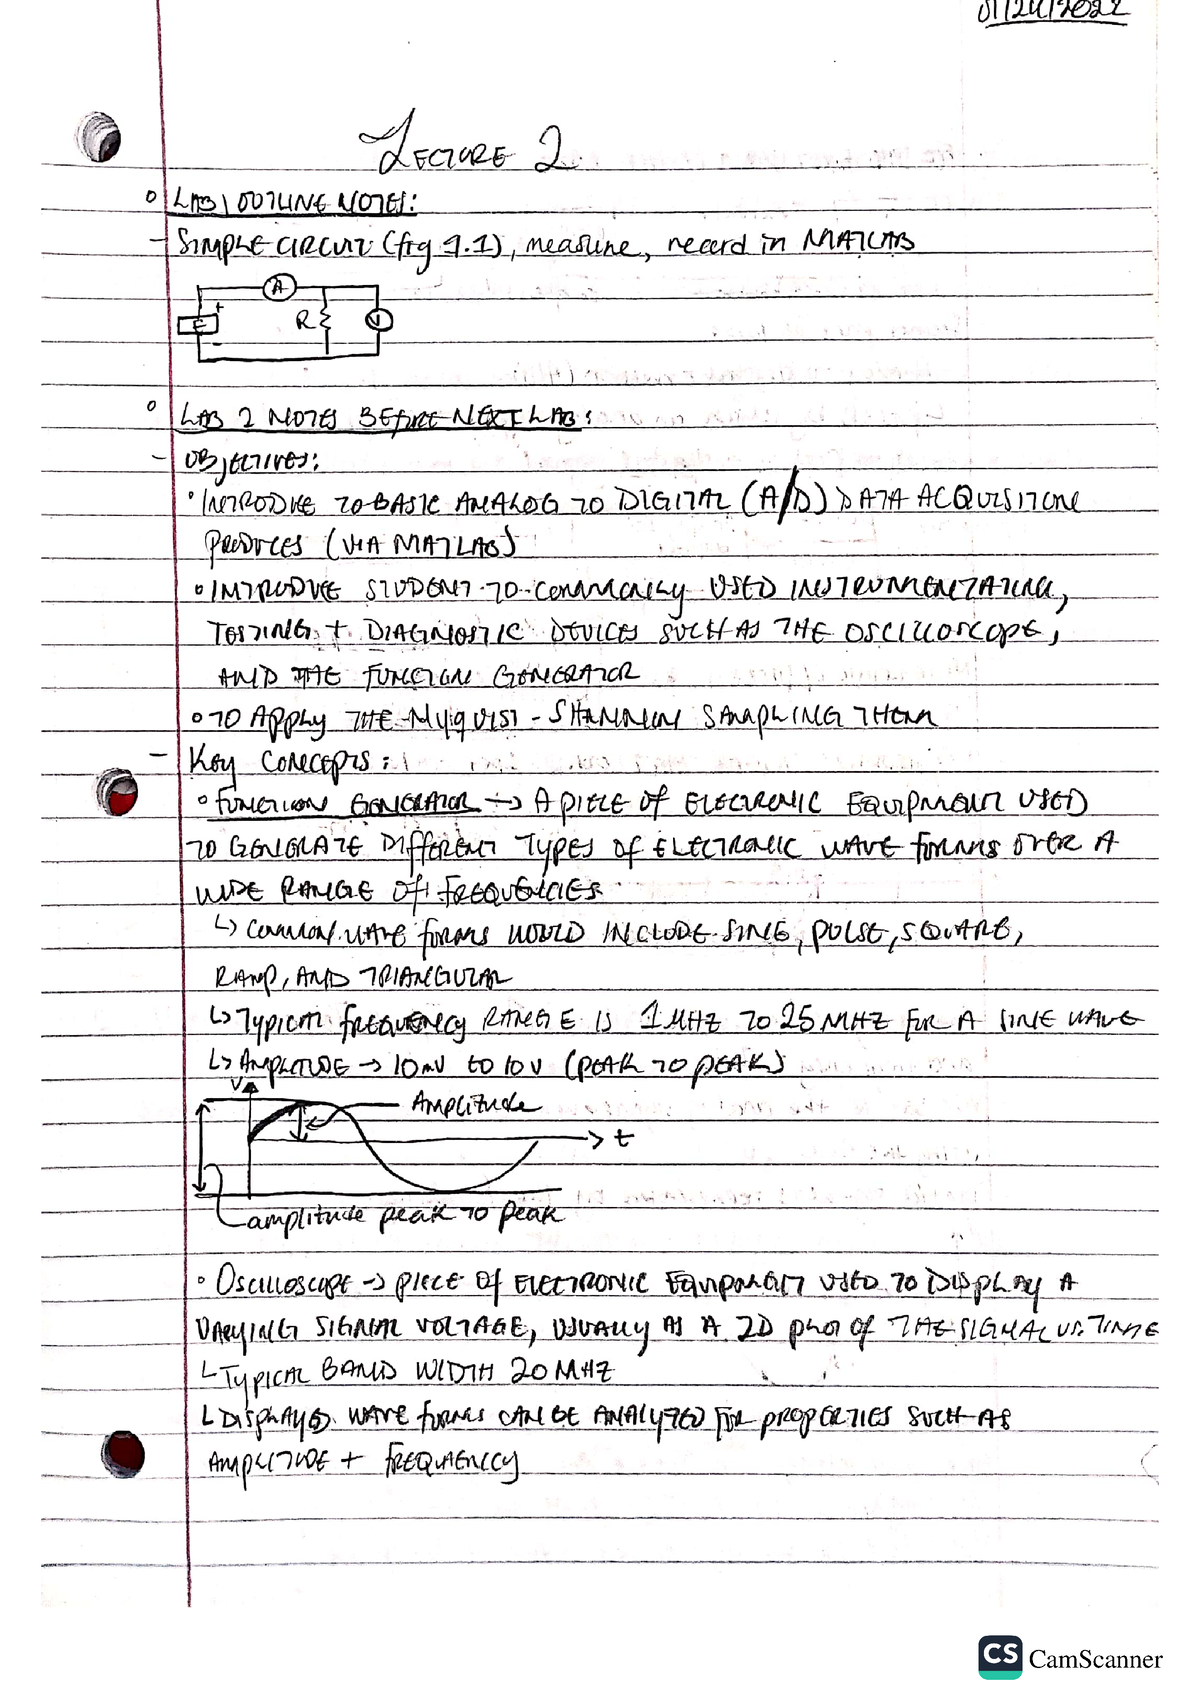 01/24/2022
LECTURE 2
LAB 1 OUTLINE NOTES:
- SIMPLE CIRCUIT (fig 9.1), measure, record in MATLAB
A
+
R
V
-
LAB 2 NOTES BEFORE NEXT LAB:
- OBJECTIVES:
INTRODUE TO BASIC ANALOG TO DIGITAL (A/D) DATA ACQUISITION
(VIA MATLAB)
INTRODUE STUDENT TO COMMONLY USED INSTRUMENTATION,
TESTING + DIAGNOSTIC DEVICES SUCH AS THE OSCILLOSCOPE,
AND THE FUNCTION GENERATOR
TO APPLY THE NYQUIST - SHANNON SAMPLING THEM
- KEY CONCEPTS:
FUNCTION GENERATOR → A PIECE OF ELECTRONIC EQUIPMENT USED
TO GENERATE DIFFERENT TYPES OF ELECTRONIC WAVE FORMS OVER A
WIDE RANGE OF FREQUENCIES
↳ COMMON WAVE FORMS WOULD INCLUDE SINE, PULSE, SQUARE,
RAMP, AND TRIANGULAR
↳ TYPICAL FREQUENCY RANGE IS 1 MHZ TO 25 MHZ FOR A SINE WAVE
↳ AMPLITUDE → 10mV to 10V (PEAK TO PEAK)
V
Amplitude
t
amplitude peak TO peak
OSCILLOSCOPE → PIECE OF ELECTRONIC EQUIPMENT USED TO DISPLAY A
VARYING SIGNAL VOLTAGE, USUALLY AS A 2D plot of THE SIGNAL VS. TIME
↳ TYPICAL BAND WIDTH 20 MHZ
↳ DISPLAYED WAVE FORMS CAN BE ANALYZED FOR PROPERTIES SUCH AS
AMPLITUDE + FREQUENCY
CS CamScanner